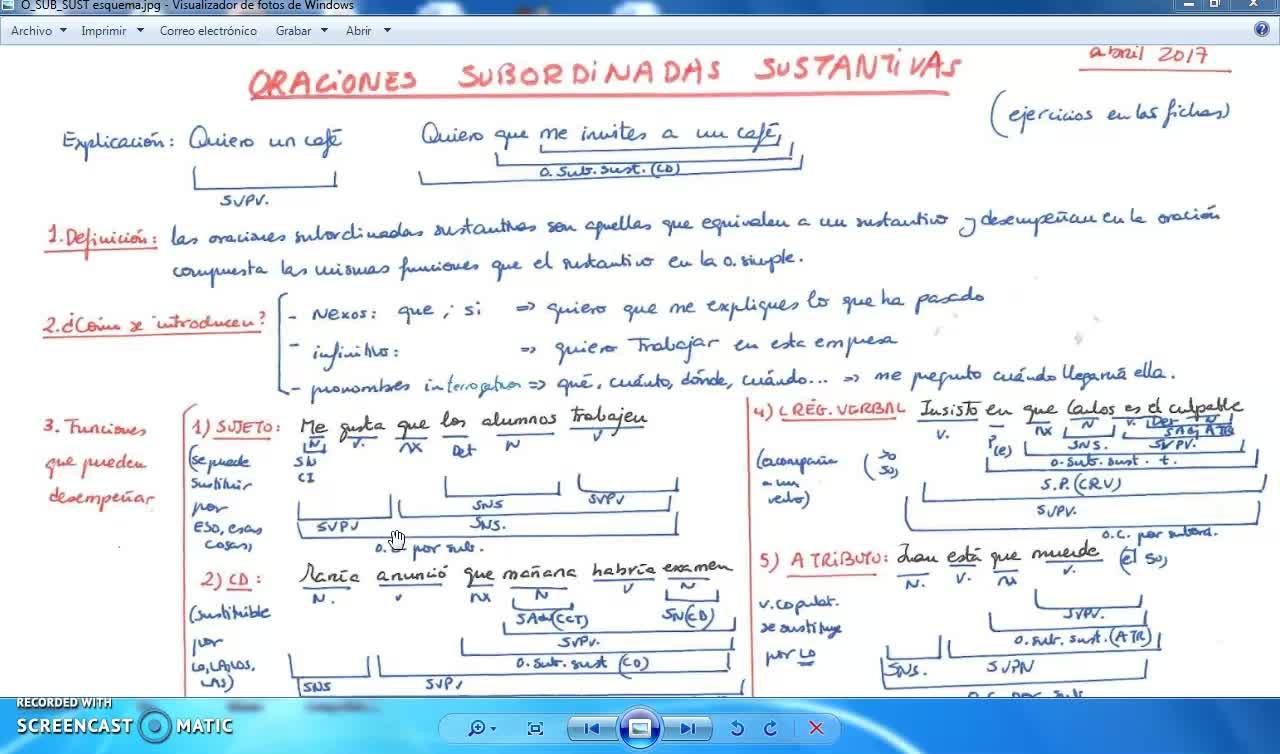 O_SUB_SUST esquema.jpg - Visualizador de fotos de Windows
Archivo Imprimir Correo electrónico Grabar Abrir
abril 2017
ORACIONES SUBORDINADAS SUSTANTIVAS
(ejercicios en las fichas)
Explicación: Quiero un café Quiero que me invites a un café,
O. Sub. Sust. (CD)
SVPV.
1. Definición: las oraciones subordinadas sustantivas son aquellas que equivalen a un sustantivo y desempeñan en la oración
compuesta las mismas funciones que el sustantivo en la o. simple.
2. ¿Cómo se introducen?
- Nexos: que, si => quiero que me expliques lo que ha pasado
- infinitivo: => quiero trabajar en esta empresa
- pronombres interrogativos => qué, cuánto, dónde, cuándo... => me pregunto cuándo llegará ella.
3. Funciones
que pueden
desempeñar
1) SUJETO: Me gusta que los alumnos trabajen
N V. NX Det N V
(se puede SN
sustituir CI
por SNS SVPV
ESO, esas SVPV SNS.
cosas,
O.C por sub.
2) CD: María anunció que mañana habría examen
N. V NX N V N
(sustituible SAdv(CCT) SN(CD)
por SVPV.
LO, LA, LOS, O. sub. sust (CD)
LAS) SNS SVPV
4) C. RÉG. VERBAL Insisto en que Carlos es el culpable
V. P(e) NX N V. Det N
SNS. SVPV.
(acompaña
a un
verbo)
O. sub. sust. t.
S.P. (CRV)
SVPV.
O.C. por subord.
5) ATRIBUTO: Juan está que muerde
N. V. NX V.
v. copulat. SVPV.
se sustituye O. sub. sust. (ATR)
por LO SNS. SVPN
RECORDED WITH
SCREENCAST MATIC